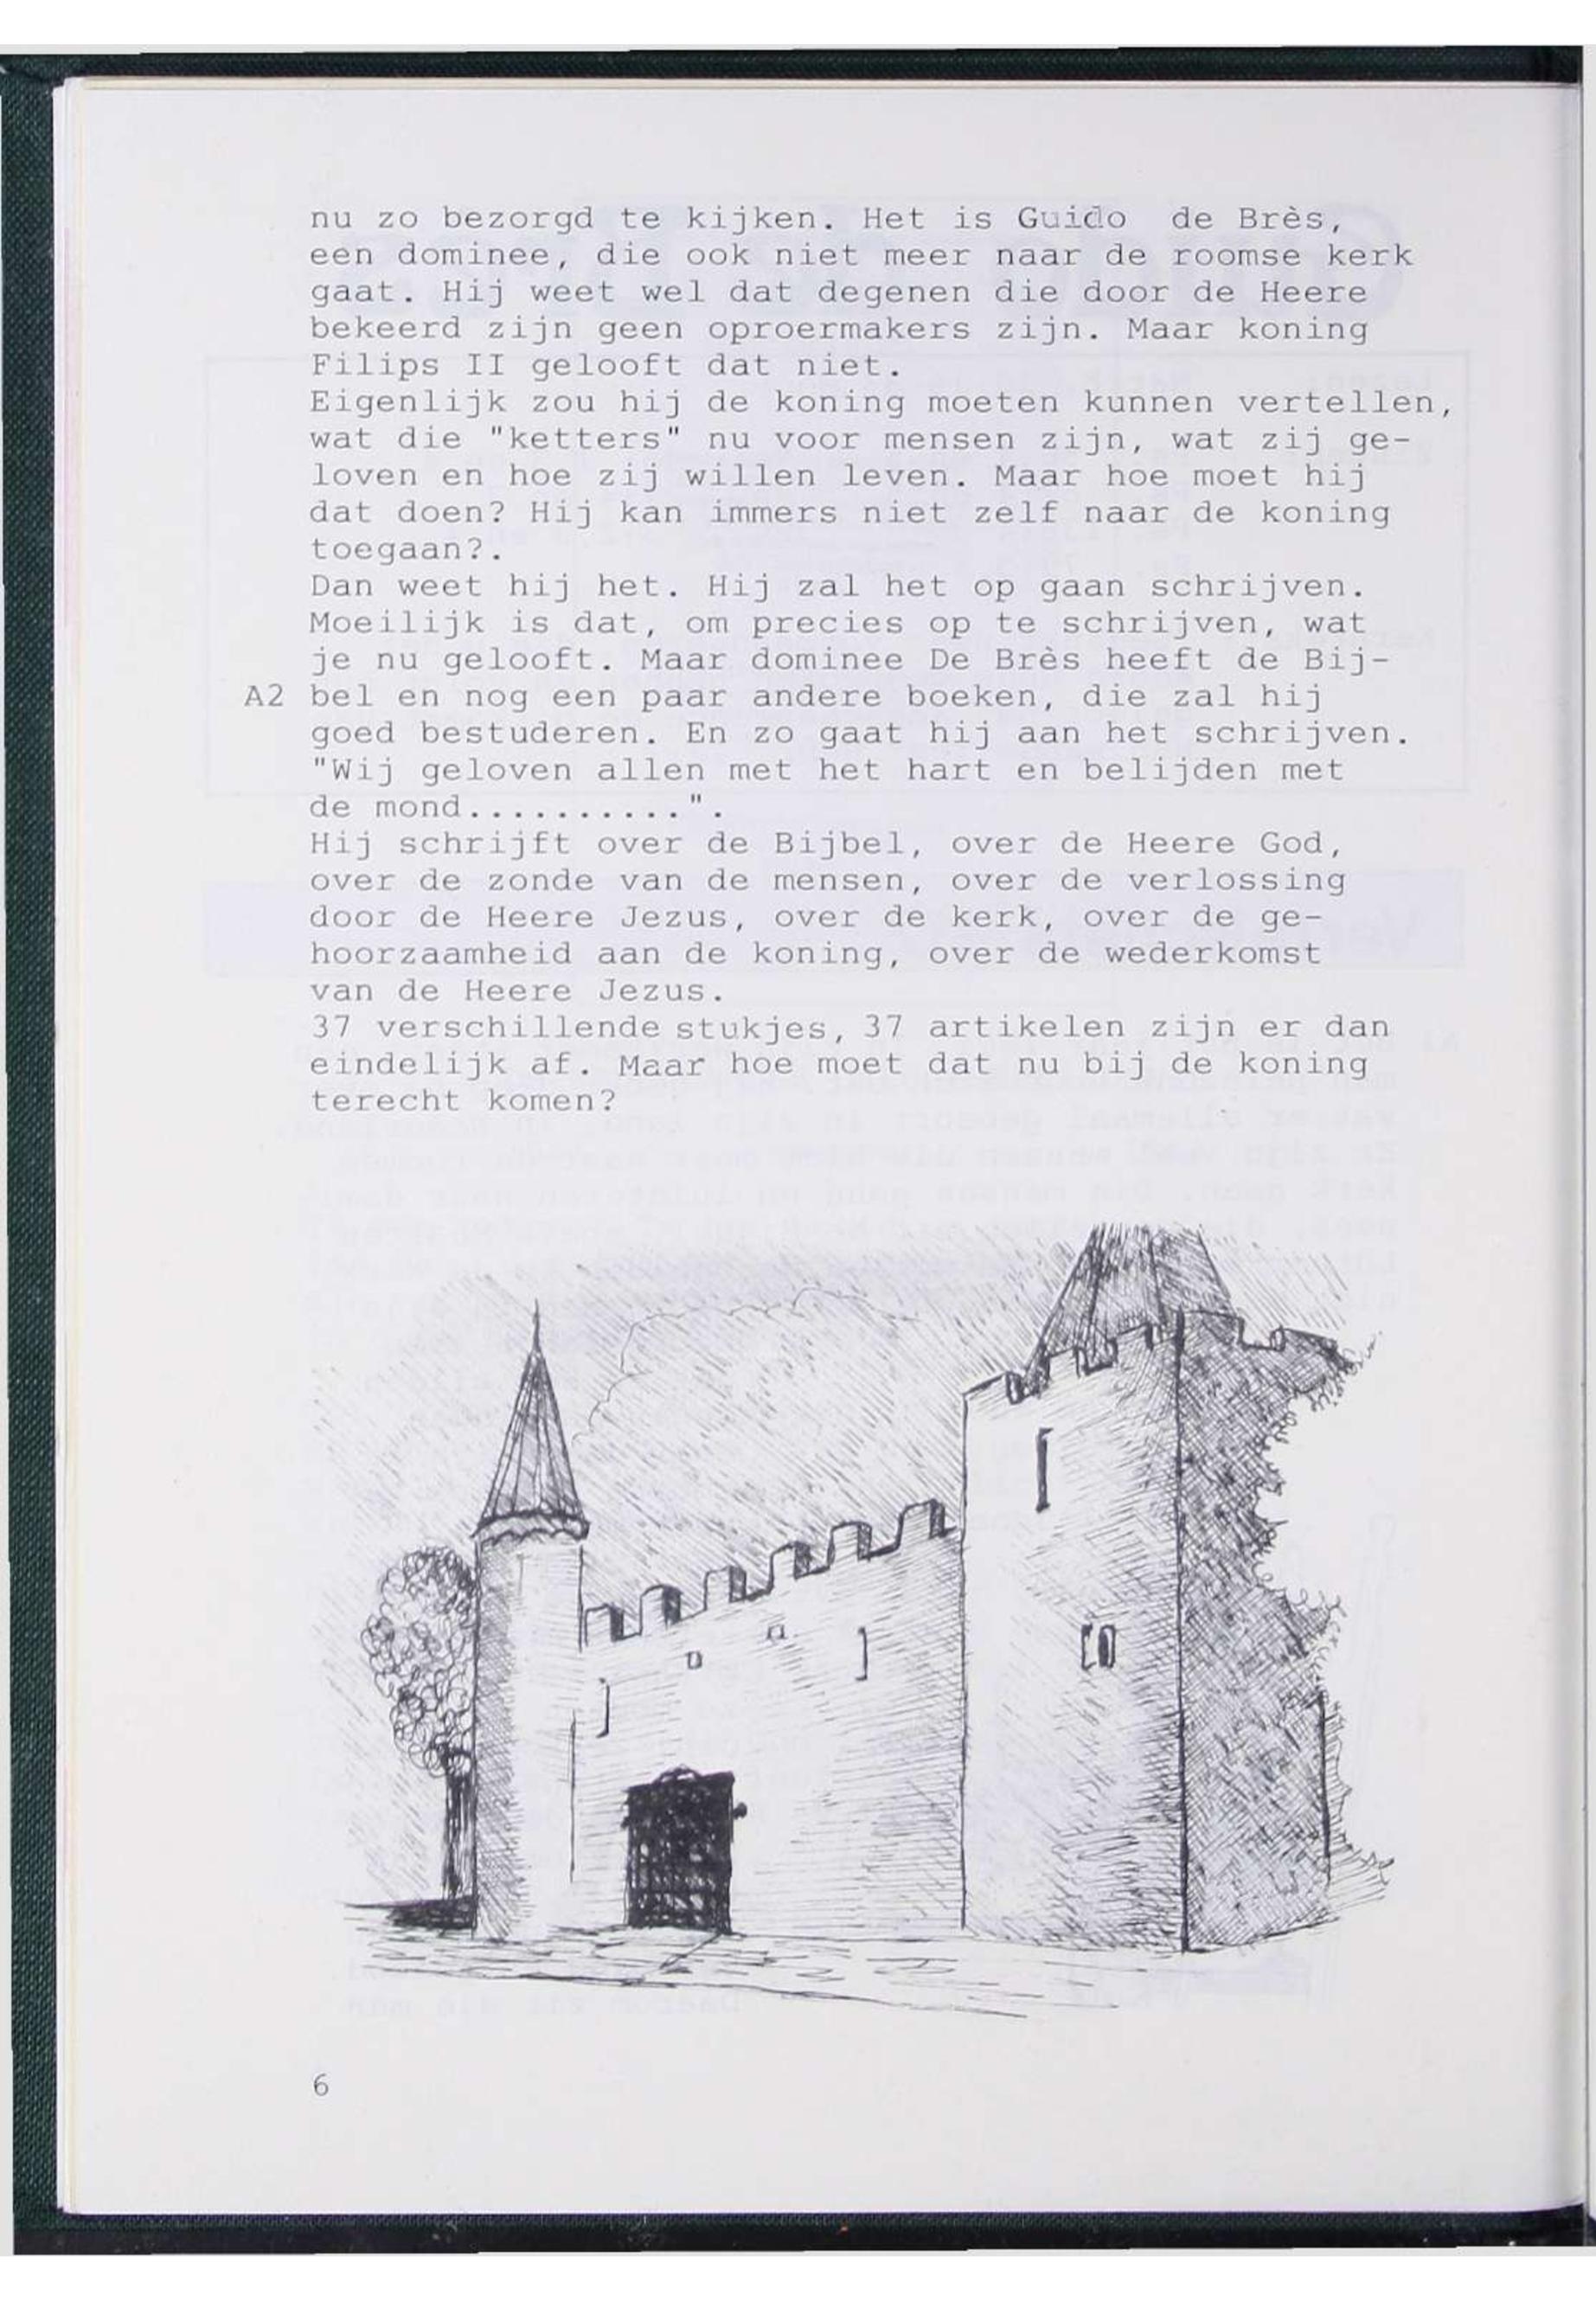 nu zo bezorgd te kijken. Het is Guido de Brès,
een dominee, die ook niet meer naar de roomse kerk
gaat. Hij weet wel dat degenen die door de Heere
bekeerd zijn geen oproermakers zijn. Maar koning
Filips II gelooft dat niet.
Eigenlijk zou hij de koning moeten kunnen vertellen,
wat die "ketters" nu voor mensen zijn, wat zij ge-
loven en hoe zij willen leven. Maar hoe moet hij
dat doen? Hij kan immers niet zelf naar de koning
toegaan?.
Dan weet hij het. Hij zal het op gaan schrijven.
Moeilijk is dat, om precies op te schrijven, wat
je nu gelooft. Maar dominee De Brès heeft de Bij-
A2 bel en nog een paar andere boeken, die zal hij
goed bestuderen. En zo gaat hij aan het schrijven.
"Wij geloven allen met het hart en belijden met
de mond..........".
Hij schrijft over de Bijbel, over de Heere God,
over de zonde van de mensen, over de verlossing
door de Heere Jezus, over de kerk, over de ge-
hoorzaamheid aan de koning, over de wederkomst
van de Heere Jezus.
37 verschillende stukjes, 37 artikelen zijn er dan
eindelijk af. Maar hoe moet dat nu bij de koning
terecht komen?
6